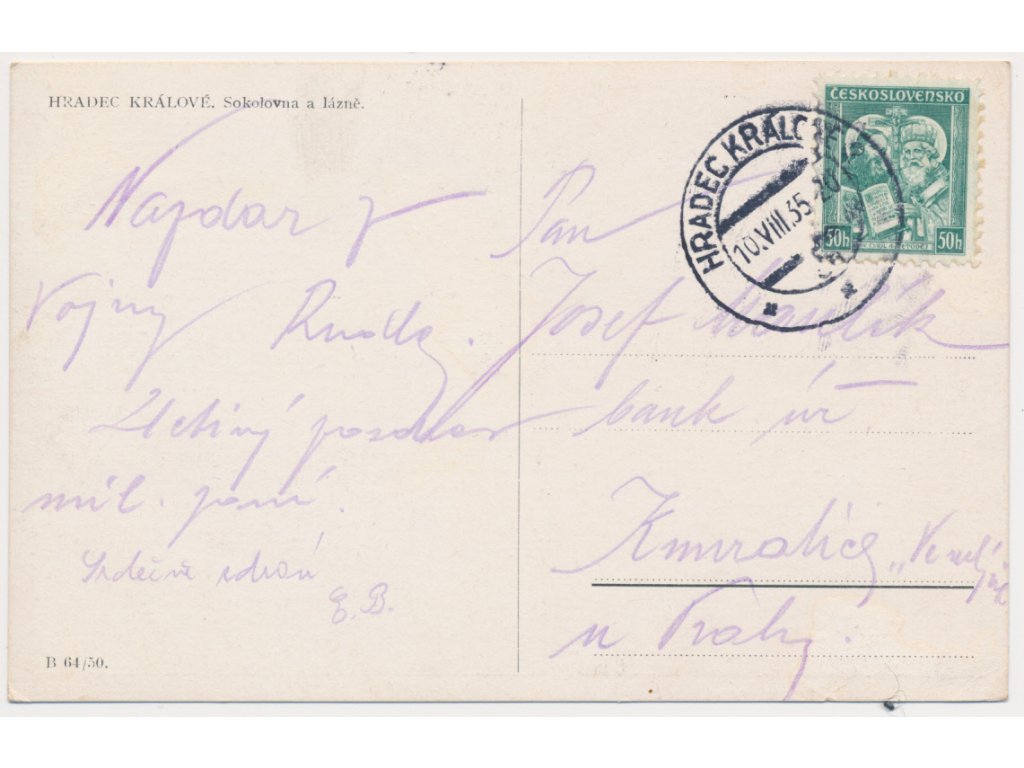 HRADEC KRÁLOVÉ. Sokolovna a lázně.
Nazdar z
Vojny Ruda.
Uctivý pozdrav
mil. paní.
Srdečně zdraví
E. B.
B 64/50.
ČESKOSLOVENSKO
50h 50h
HRADEC KRÁLOVÉ
10.VIII.35
Pan
Josef
bank úř.
u Prahy.